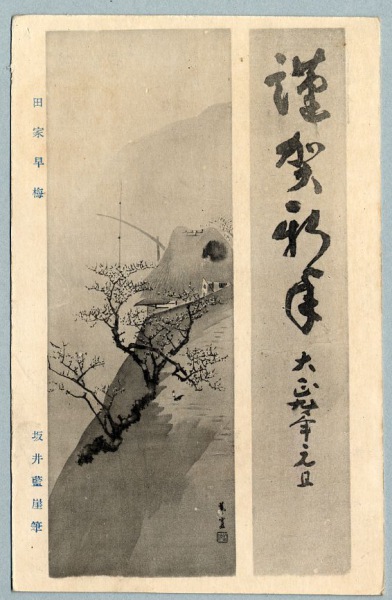 謹賀新年
大正九年元旦
田家早梅
坂井藍崖筆
藍崖